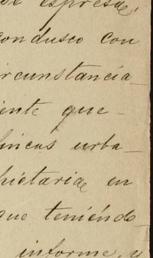 se espresa,
conduseo con
circunstancia
iente que
fincas urba-
pietaria en
que teniendo
informe, y